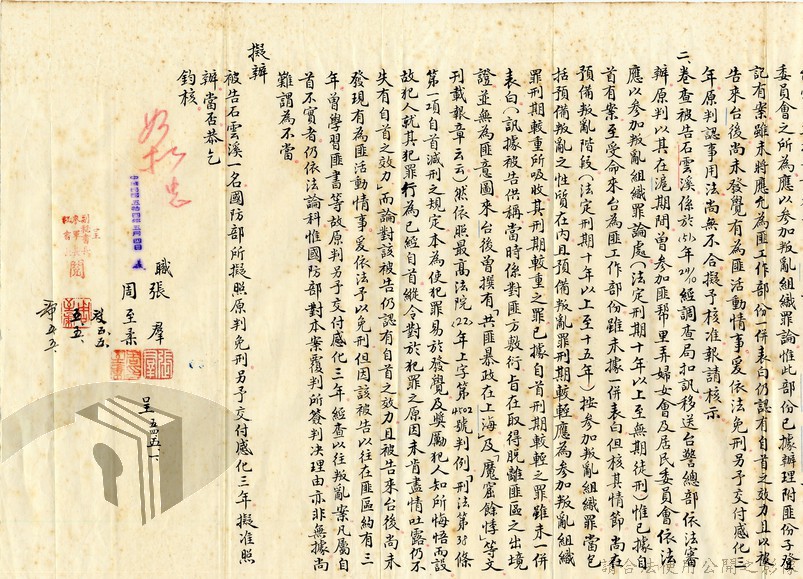 委員會之所為應以參加叛亂組織罪論惟此部份已據辦理附匪份子登
記有案雖未將應允為匪工作部份一併表白仍認有自首之效力且以被
告來台後尚未發覺有為匪活動情事爰依法免刑另予交付感化三
年原判認事用法尚無不合擬予核准報請核示
二、卷查被告石雲溪係於51年10經調查局扣訊移送台警總部依法審
辦原判以其在滬期間曾參加匪幫里弄婦女會及居民委員會依法
應以參加叛亂組織罪論處(法定刑期十年以上至無期徒刑)惟已據自
首有案至受命來台為匪工作部份雖未據一併表白但核其情節尚在
預備叛亂階段(法定刑期十年以上至十五年)按參加叛亂組織罪當包
括預備叛亂之性質在內且預備叛亂罪刑期較輕應為參加叛亂組織
罪刑期較重所吸收其刑期較重之罪已據自首刑期較輕之罪雖未一併
表白(訊據被告供稱當時係對匪方敷衍旨在取得脫離匪區之出境
證並無為匪意圖來台後曾撰有「共匪暴政在上海」及「魔窟餘悸」等文
刊載報章云云)然依照最高法院22年上字第4502號判例「刑法第38條
第一項自首減刑之規定本為使犯罪易於發覺及獎勵犯人知所悔悟而設
故犯人就其犯罪行為已經自首縱令對於犯罪之原因未肯盡情吐露仍不
失有自首之效力」而論對該被告仍認有自首之效力且被告來台後尚未
發現有為匪活動情事爰依法予以免刑但因該被告以往在匪區約有三
年曾學習匪書等故原判另予交付感化三年經查以往叛亂案凡屬自
首不實者仍依法論科惟國防部對本案覆判所簽判決理由亦非無據尚
難謂為不當
擬辦
被告石雲溪一名國防部所擬照原判免刑另予交付感化三年擬准照
辦當否恭乞
鈞核
職張 羣
周至柔
呈 五四、五、一
如擬 忠
請合法使用公開之影像